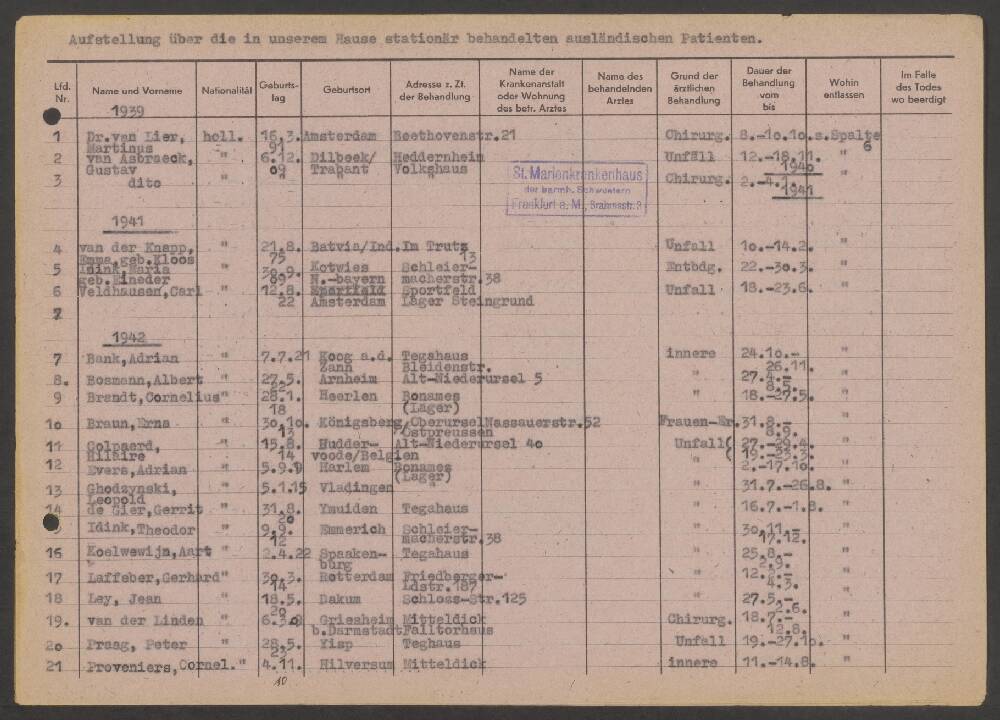 Aufstellung über die in unserem Hause stationär behandelten ausländischen Patienten.
Lfd. Nr. Name und Vorname Nationalität Geburtstag Geburtsort Adresse z. Zt. der Behandlung Name der Krankenanstalt oder Wohnung des betr. Arztes Name des behandelnden Arztes Grund der ärztlichen Behandlung Dauer der Behandlung vom bis Wohin entlassen Im Falle des Todes wo beerdigt
1939
1 Dr.van Lier, holl. 16.3. Amsterdam Beethovenstr.21 Chirurg. 8.-10.10. s.Spalte
Martinus 91 6
2 van Asbraeck, " 6.12. Dilbeek/ Heddernheim Unfall 12.-18.11. "
Gustav 09 Trabant Volkshaus 1940
3 dito " " " " Chirurg. 2.-4.1. "
1941
St. Marienkrankenhaus
der barmh. Schwestern
Frankfurt a. M., Brahmsstr. 3
1941
4 van der Knapp, " 21.8. Batvia/Ind. Im Trutz Unfall 10.-14.2. "
Emma,geb.Kloos 75 13
5 Idink,Maria " 30.9. Kotwies Schleier- Entbdg. 22.-30.3. "
geb.Eineder 09 N.-bayern macherstr.38
6 Veldhausen,Carl " 12.8. Sportfeld Unfall 18.-23.6. "
22 Amsterdam Lager Steingrund
7
1942
7 Bank,Adrian " 7.7.21 Koog a.d. Tegahaus innere 24.10.- "
Zann Bleidenstr. 26.11.
8. Bosmann,Albert " 27.5. Arnheim Alt-Niederursel 5 " 27.4.- "
22 8.5.
9 Brandt,Cornelius" 28.1. Heerlen Bonames " 18.-27.5. "
18 (Lager)
10 Braun,Erna " 30.10. Königsberg/ Oberursel Nassauerstr.52 Frauen-Kr. 31.8.- "
13 Ostpreussen 8.9.
11 Colpaerd, " 15.8. Hudder- Alt-Niederursel 40 Unfall( 27.-29.4. "
Hilaire 14 voode/Belgien ( 19.-23.3. "
12 Evers,Adrian " 5.9.19 Harlem Bonames " 2.-17.10. "
(Lager)
13 Ghodzynski, " 5.1.15 Vladingen " " 31.7.-26.8. "
Leopold
14 de Gier,Gerrit " 31.8. Ymuiden Tegahaus " 16.7.-1.8. "
20
Idink,Theodor " 9.9. Emmerich Schleier- " 30.11.- "
12 macherstr.38 17.12.
16 Koelwewijn,Aart " 2.4.22 Spaaken- Tegahaus " 25.8.- "
burg 2.9.
17 Laffeber,Gerhard" 30.3. Rotterdam Friedberger- " 12.2.- "
14 Ldstr.187 4.3.
18 Ley, Jean " 18.5. Dakum Schloss-Str.125 " 27.5.- "
20 2.6.
19. van der Linden " 6.3.08 Griesheim Mitteldick Chirurg. 18.7.- "
b.Darmstadt Falltorhaus 12.8.
20 Praag, Peter " 28.5. Yisp Teghaus Unfall 19.-27.10. "
23
21 Proveniers,Cornel." 4.11. Hilversum Mitteldick innere 11.-14.8. "
10